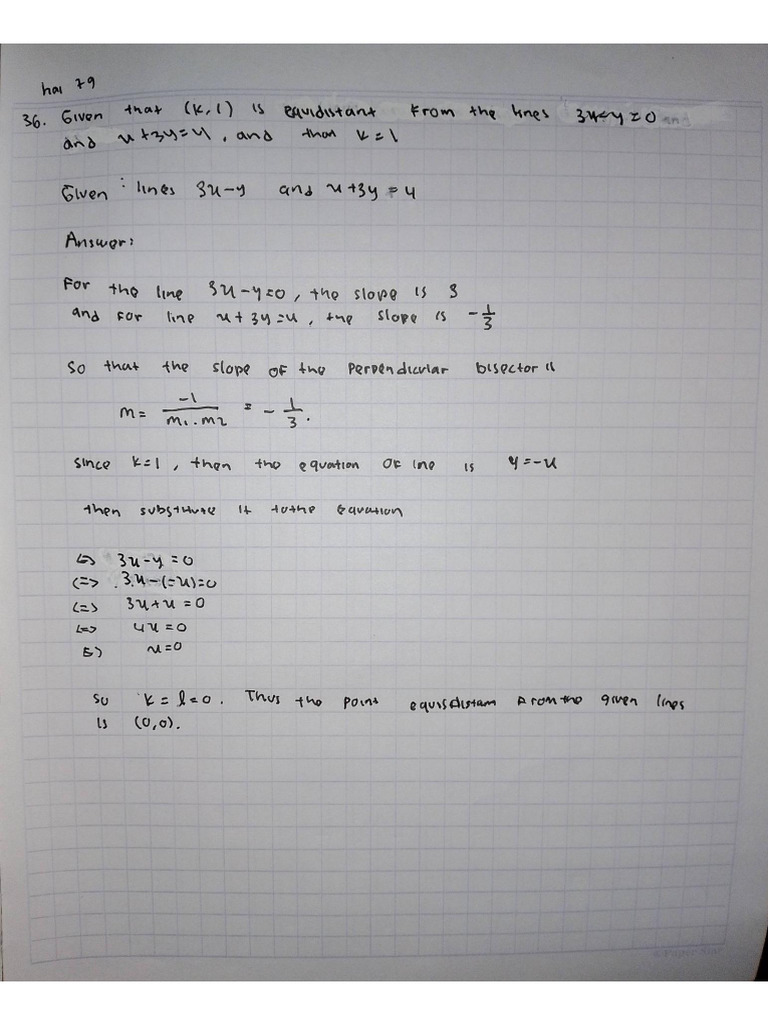 hal 79
36. Given that (k, l) is equidistant from the lines 3x-y=0 and
and x+3y=4, and that k=l
Given : lines 3x-y and x+3y=4
Answer:
For the line 3x-y=0, the slope is 3
and for line x+3y=4, the slope is -1/3
So that the slope of the perpendicular bisector is
m= -1/(m1.m2) = -1/3.
Since k=l, then the equation of line is y=-x
then substitute it to the equation
<=> 3x-y=0
<=> 3.x-(-x)=0
<=> 3x+x=0
<=> 4x=0
<=> x=0
So k=l=0. Thus the point equisdistam from the given lines
is (0,0).